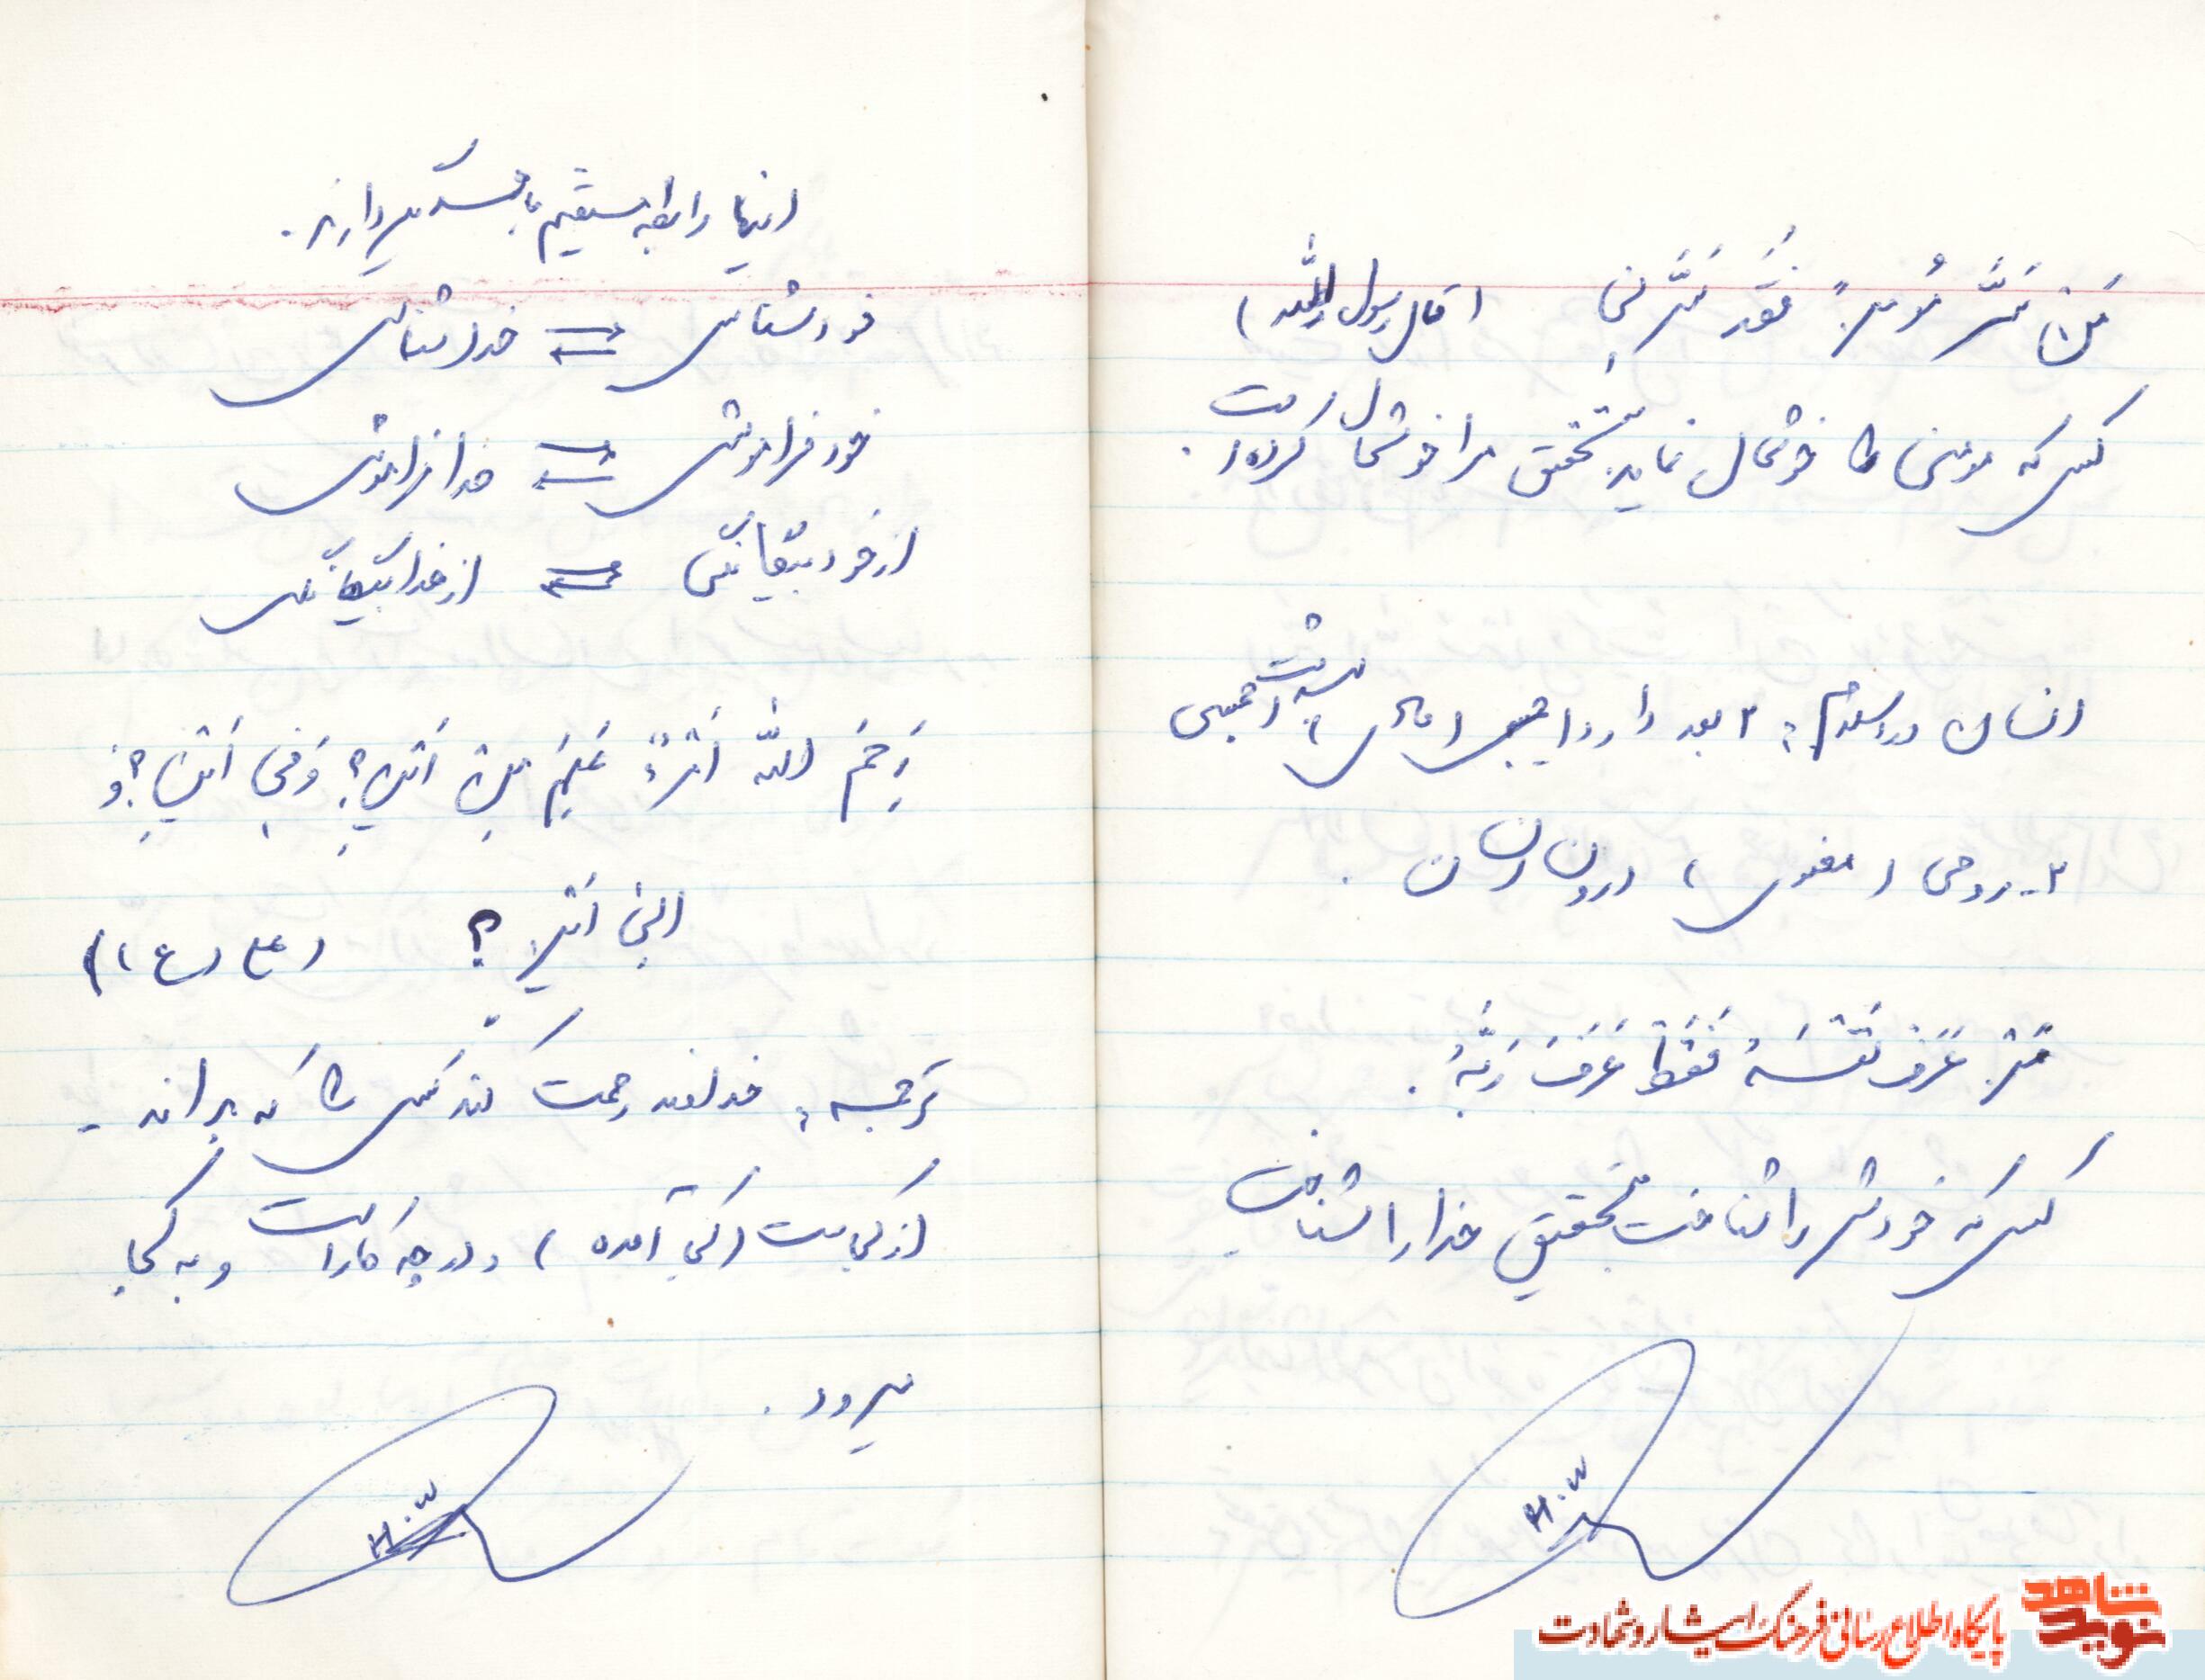 مَن سَرَّ مُومناً فَقَد سَرَّنی (قال رسول الله)
کسی که مومنی را خوشحال نماید بتحقیق مرا خوشحال کرده است.
انسان در اسلام: ۲ بعد دارد ۱-جسمی
۲-روحی (معنوی) درون انسان.
مَن عَرَفَ نَفسَهُ فَقَط عَرَفَ رَبَّهُ.
کسی که خودش را شناخت بتحقیق خدا را شناخت
H.س
اینها رابطه مستقیم با یکدیگر دارند.
خودشناسی ⇌ خداشناسی
خود فراموشی ⇌ خدا فراموشی
از خود بیگانگی ⇌ از خدا بیگانگی
رَحِمَ اللّه اَمرَءً عَلِمَ مِن اَین؟ وَ فی اَین؟ وَ
اِلی اَین؟ (علی (ع))
ترجمه: خداوند رحمت کند کسی را که بداند-
از کجاست (کجا آمده) و در چه کار است و به کجا
میرود.
H.س
نوید شاهد
پایگاه اطلاع رسانی فرهنگ ایثار و شهادت